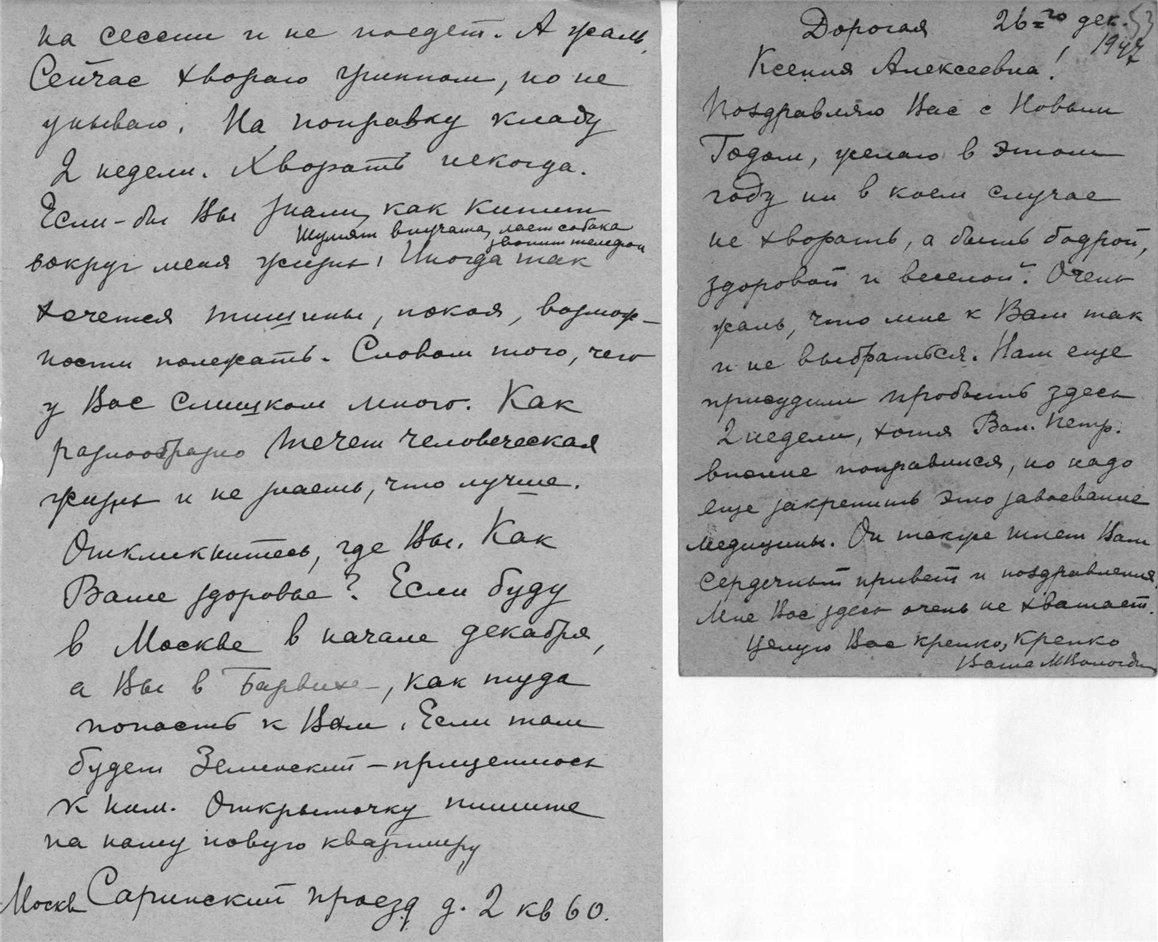 на сессии и не поедет. А жаль.
Сейчас хвораю гриппом, но не
унываю. На поправку кладу
2 недели. Хворать некогда.
Если-бы Вы знали, как кипит
шумят внучата, лает собака
звонит телефон
вокруг меня жизнь! Иногда так
хочется тишины, покоя, возмож-
ности полежать. Словом того, чего
у Вас слишком много. Как
разнообразно течет человеческая
жизнь и не знаешь, что лучше.
Откликнитесь, где Вы. Как
Ваше здоровье? Если буду
в Москве в начале декабря,
а Вы в Барвихе, как туда
попасть к Вам. Если там
будет Зелинский – прицеплюсь
к ним. Открыточку пишите
на нашу новую квартиру
Москва Саринский проезд д. 2 кв 60.
53
Дорогая 26=го дек.
1947
Ксения Алексеевна!
Поздравляю Вас с Новым
Годом, желаю в этом
году ни в коем случае
не хворать, а быть бодрой,
здоровой и веселой. Очень
жаль, что мне к Вам так
и не выбраться. Нам еще
присудили пробыть здесь
2 недели, хотя Вал. Петр.
вполне поправился, но надо
еще закрепить это завоевание
медицины. Он также шлет Вам
сердечный привет и поздравления.
Мне Вас здесь очень не хватает.
Целую Вас крепко, крепко
Ваша М Вологди